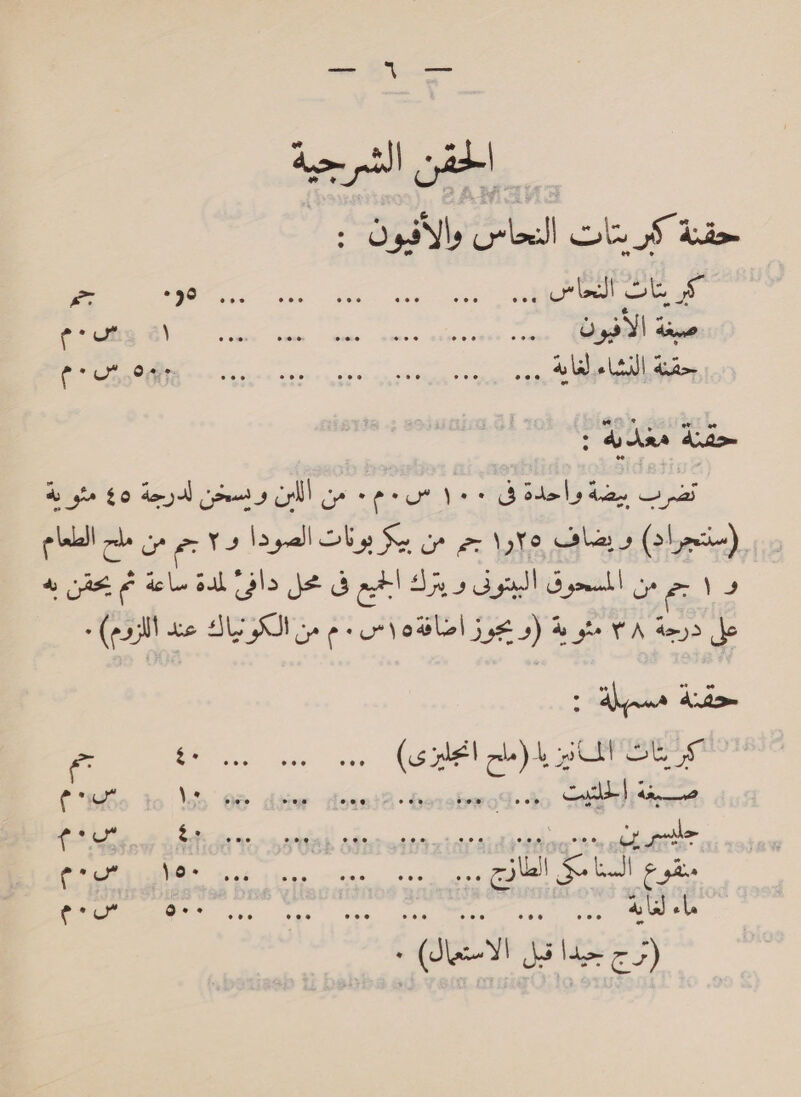 — ٦ —
الحقن الشرجية
حقنة كبريتات النحاس والأفيون :
كبريتات النحاس ... ... ... ... ... ... ٥و٠ جم
صبغة الأفيون ... ... ... ... ... ... ١ س٠م
حقنة النشاء لغاية ... ... ... ... ... ... ٥٠٠ س٠م
حقنة مغذية :
تضرب بيضة واحدة فى ١٠٠ س٠م٠ من اللبن ويسخن لدرجة ٤٥ مئوية
(سنتجراد) ويضاف ٢٥و١ جم من بيكربونات الصودا و ٢ جم من ملح الطعام
و ١ جم من المسحوق الببتونى ويترك الجميع فى محل دافئ لمدة ساعة ثم يحقن به
على درجة ٣٨ مئوية (ويجوز اضافة ١٥س٠م من الكونياك عند اللزوم)٠
حقنة مسهلة :
كبريتات المانيزيا (ملح انجليزى) ... ... ... ٤٠ جم
صبغة الحلتيت ... ... ... ... ... ... ١٠ س٠م
جليسرين ... ... ... ... ... ... ... ٤٠ س٠م
منقوع السنامكى الطازج ... ... ... ... ... ١٥٠ س٠م
ماء لغاية ... ... ... ... ... ... ... ٥٠٠ س٠م
(ترج جيدا قبل الاستعمال) ٠